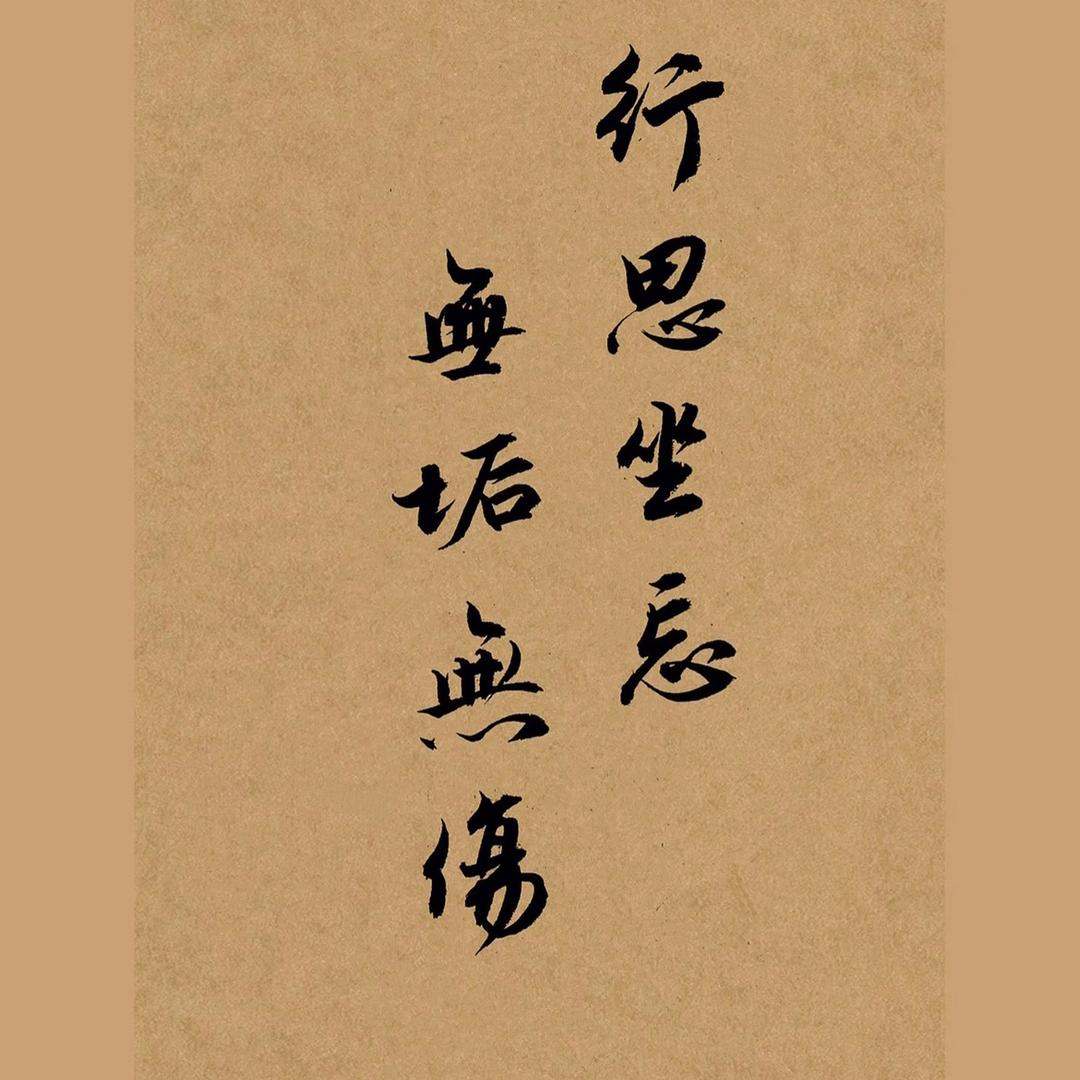 行思坐忘
無垢無傷